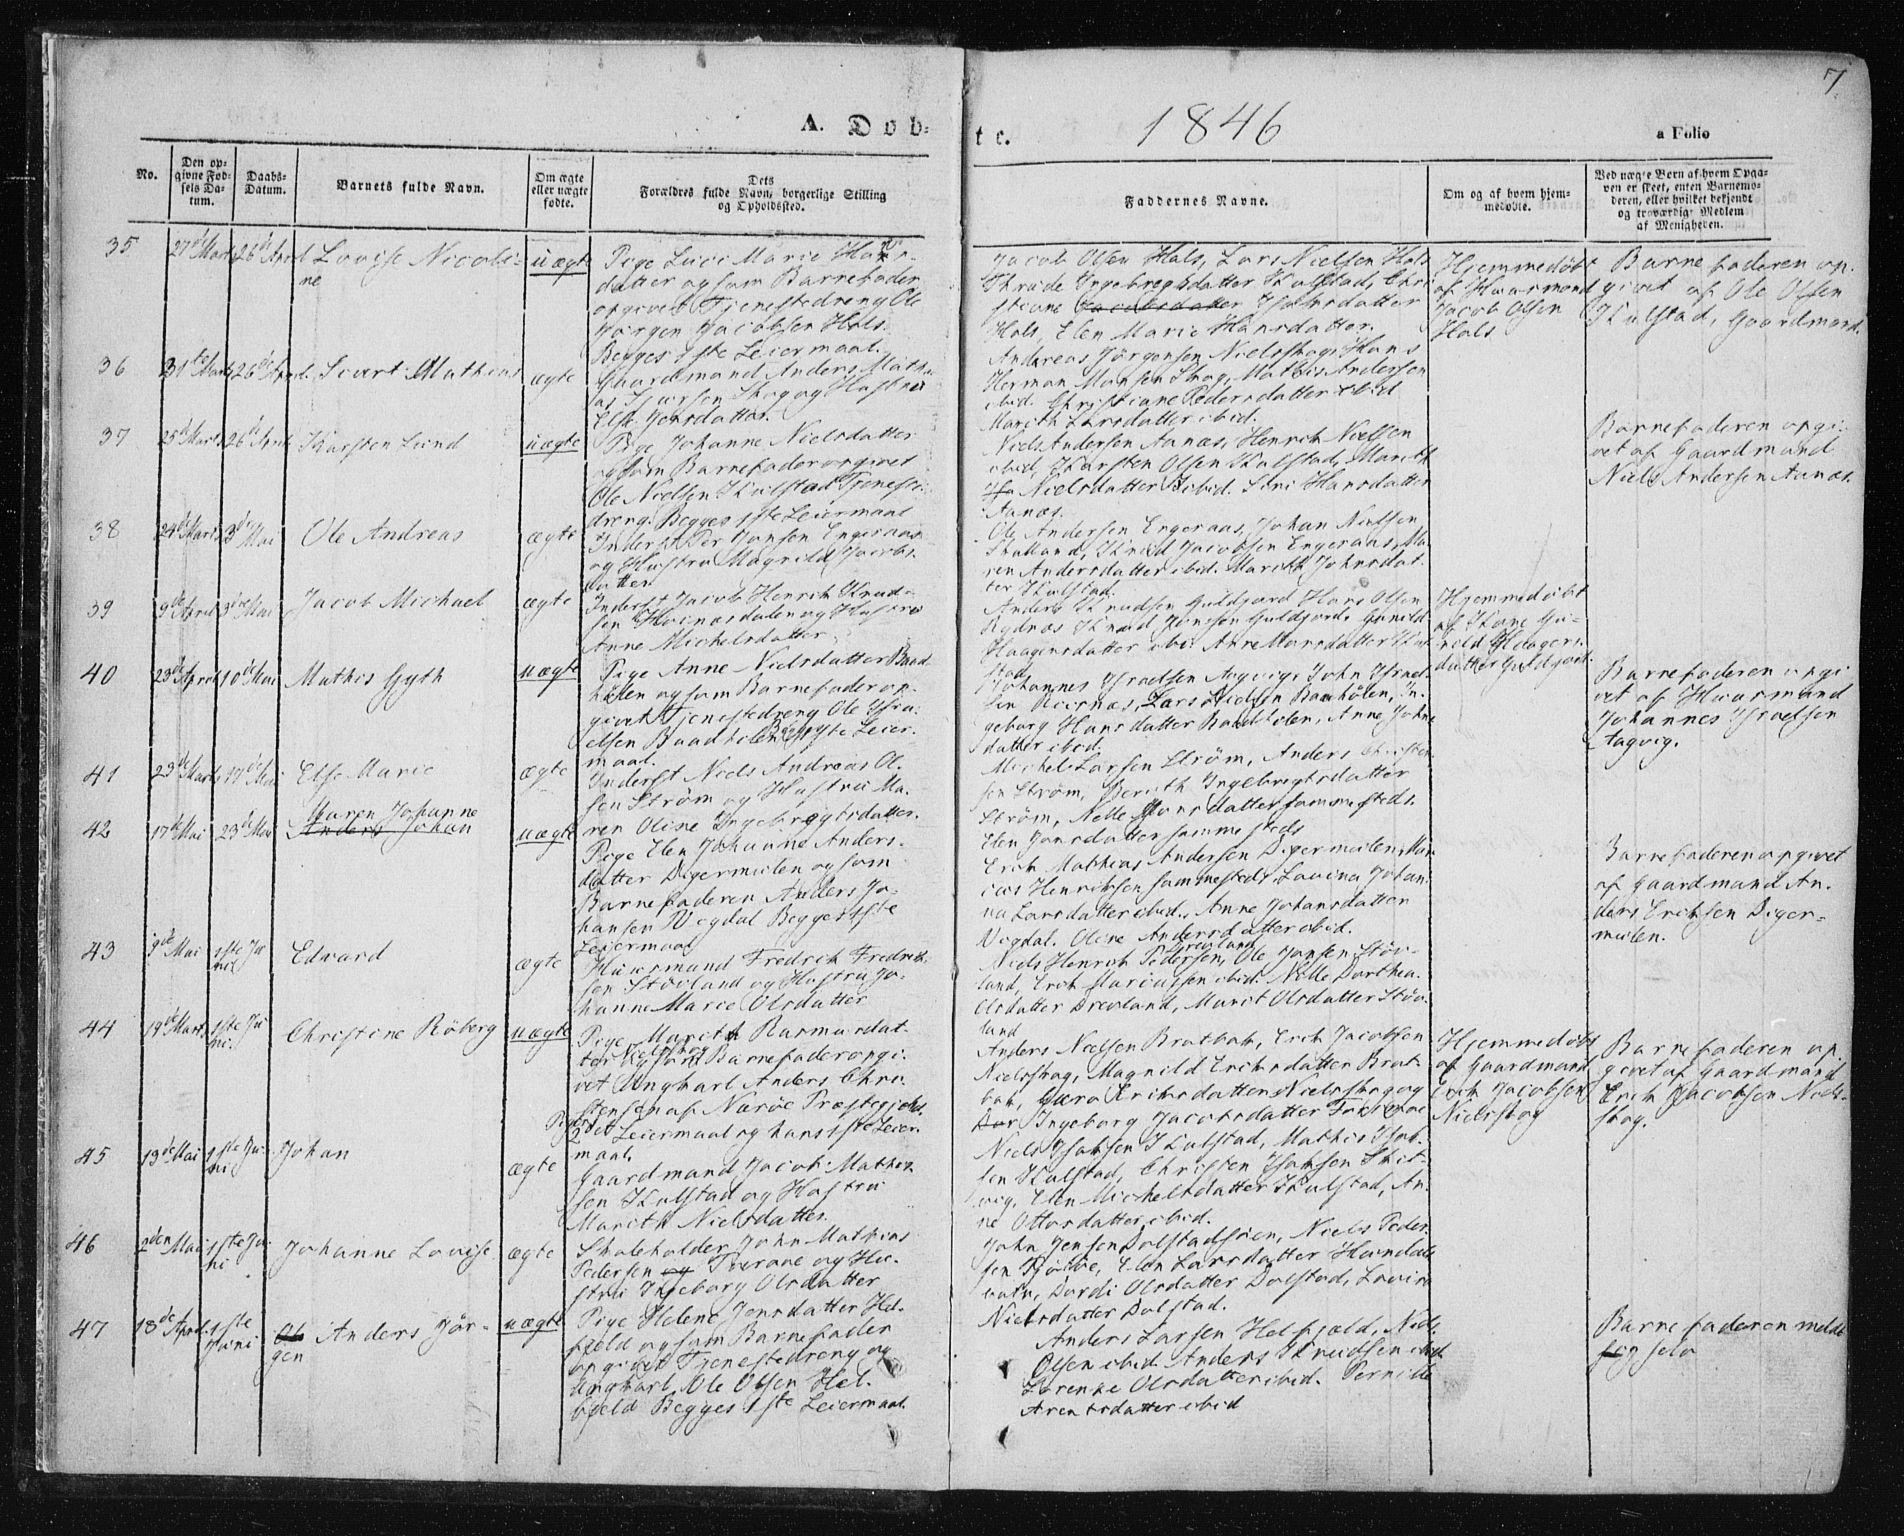 7
A. Døb-
te.
1846
a Folio
No.
Den op-
givne Fød-
sels Da-
tum.
Daabs-
Datum.
Barnets fulde Navn.
Om ægte
eller uægte
fødte.
Dets
Forældres fulde Navn, borgerlige Stilling
og Opholdssted.
Faddernes Navne.
Om og af hvem hjem-
medøbte.
Ved uægte Børn af hvem Opga-
ven er skeet, enten Barnemo-
deren, eller hvilket bekjendt
og troværdigt Medlem
af Menigheden.
35
27de Marts
26de April
Lovise Nicoli-
ne
uægte
Pige Luci Marie
datter og som Barnefader
opgivet Tjenestedreng Ole
Jørgen Jacobsen Hals.
Begges 1ste Leiermaal.
Jacob Olsen Hals, Lars Nielsen Hals
Ingebregtsdatter Kulstad, Chri
stiane Isaksdatter
Hals, Elen Marie Hansdatter
Hjemmedøbt
af Huusmand
Jacob Olsen
Hals
Barnefaderen op-
givet af Ole Olsen
Kulstad, Gaardmand.
36
31te Marts
26de April
Sivert Mathias
ægte
Gaardmand Anders Mathi
as Sjursen Skog og Hustru
Else Jensdatter.
Andreas Jørgensen Nielsskog, Hans
Herman Hansen Skog, Mathis Andersen
ibid. Christiane Pedersdatter ibid
Marith Larsdatter ibid.
37
25de Marts
26de April
Karsten Lund
uægte
Pige Johanne Nielsdatter
og som Barnefader opgivet
Ole Nielsen Kulstad Tjeneste-
dreng. Begges 1ste Leiermaal
Niels Andersen Aanæs, Henrich Nielsen
ibid, Karsten Olsen Kulstad, Marith
Nielsdatter ibid. Siri Hansdatter
Aanæs.
Barnefaderen opgi-
vet af Gaardmand
Niels Andersen Aanæs.
38
24de Marts
3de Mai
Ole Andreas
ægte
Inderst Per Jonsen Engeraas
og Hustru Magnild Jacobs
datter
Ole Andersen Engeraas, Johan Nielsen
Knud Jacobsen Engeraas, Ma-
ren Andersdatter ibid. Marith Johnsdat-
ter Kulstad.
39
9de April
3die Mai
Jacob Michael
ægte
Inderst Jacob Henrik Knud-
sen og Hustru
Anne Michelsdatter
Anders Knudsen Guldfjord Hans Olsen
Rydnæs Knud Jonsen Guldfjord, Gunild
Haagensdatter ibid. Anne Hansdatter Kul
stad
Hjemmedøbt
af Kone Gu-
nild Haagens-
datter Guldfjord.
40
23de April
10de Mai
Mathis Gyth
uægte
Pige Anne Nielsdatter Baad
holen og som Barnefader op-
givet Tjenestedreng Ole Isra-
elsen Baadholen Begges 1ste Leier-
maal.
Johannes Israelsen Aagvig, John Israel-
sen Lars Nielsen Baadholen, In-
geborg Hansdatter Baadholen, Anne Johns
datter ibid.
Barnefaderen opgi
vet af Huusmand
Johannes Israelsen
Aagvig.
41
23de Marts
17de Mai
Else Marie
ægte
Inderst Niels Andreas Ol-
sen Strøm og Hustru Ma-
ren Oline Ingebregtsdatter.
Michel Larsen Strøm, Anders Christen
sen Strøm, Berith Ingebrigtsdatter
Strøm, Nelle Hansdatter sammesteds.
Elen Jonsdatter sammesteds
42
17de Mai
23de Mai
Maren Johanne
Anders Johan
uægte
Pige Elen Johanne Anders-
datter Digermulen og som
Barnefaderen Anders Jo-
hansen Vegdal Begges 1ste
Leiermaal
Erich Mathias Andersen Digermulen, Mari
ius Henriksen sammesteds, Lavina Johan-
na Larsdatter ibid., Anne Johansdatter
Vegdal. Oline Andersdatter ibid.
Barnefaderen opgivet
af Gaardmand An-
ders Erichsen Diger-
mulen.
43
9de Mai
1ste Ju
ni
Edvard
ægte
Huusmand Fredrik Fredrik-
sen Støvland og Hustru Jo-
hanne Marie Olsdatter
Niels Henrik Pedersen Drevland, Ole Jonsen Støv-
land, Erich Mariussen ibid. Nelle Dorthea
Olsdatter Drevland, Marit Olsdatter Støv-
land
44
19de Marts
1ste Ju
ni.
Christine Røberg
uægte
Pige Marith Rasmusdat-
ter Nielsskog og som Barnefader opgi-
vet Ungkarl Anders Chri-
stensen af Nærøe Præstegjeld.
Pigens 2det Leiermaal og hans 1ste Leier-
maal.
Anders Nielsen Bratbak, Erich Jacobsen
Nielsskog, Magnild Erichsdatter Brat-
bak, Eriksdatter Nielsskog og
Ingeborg Jacobsdatter
Hjemmedøbt
af Gaardmand
Erich Jacobsen
Nielsskog
Barnefaderen op-
givet af Gaardmand
Erich Jacobsen Niels-
skog.
45
13de Mai
1ste Ju-
ni
Johan
ægte
Gaardmand Jacob Mathis
sen Kulstad og Hustru
Marith Nielsdatter.
Niels Isaksen Kulstad, Mathis Isak-
sen Kulstad, Christen Isaksen Skit-
vig, Elen Michelsdatter Kulstad, An-
ne Ottosdatter ibid.
46
2den Mai
1ste Ju
ni
Johanne Lovise
ægte
Skoleholder John Mathias
Pedersen og Hu-
stru Ingeborg Olsdatter
John Jensen Dolstadsøen, Niels Peder-
sen Elen Larsdatter
Dordi Olsdatter Dolstad, Lovise
Nielsdatter Dolstad.
47
18de April
1ste
Juni
Ole Anders Jør-
gen
uægte
Pige Helene Jensdatter Hel-
fjeld og som Barnefader
opgivet Tjenestedreng og
Ungkarl Ole Olsen Hel-
fjeld Begges 1ste Leiermaal.
Anders Larsen Helfjeld, Niels
Olsen ibid. Anders Knudsen ibid
Lorense Olsdatter ibid. Pernille
Arentsdatter ibid
Barnefaderen meldt
sig selv